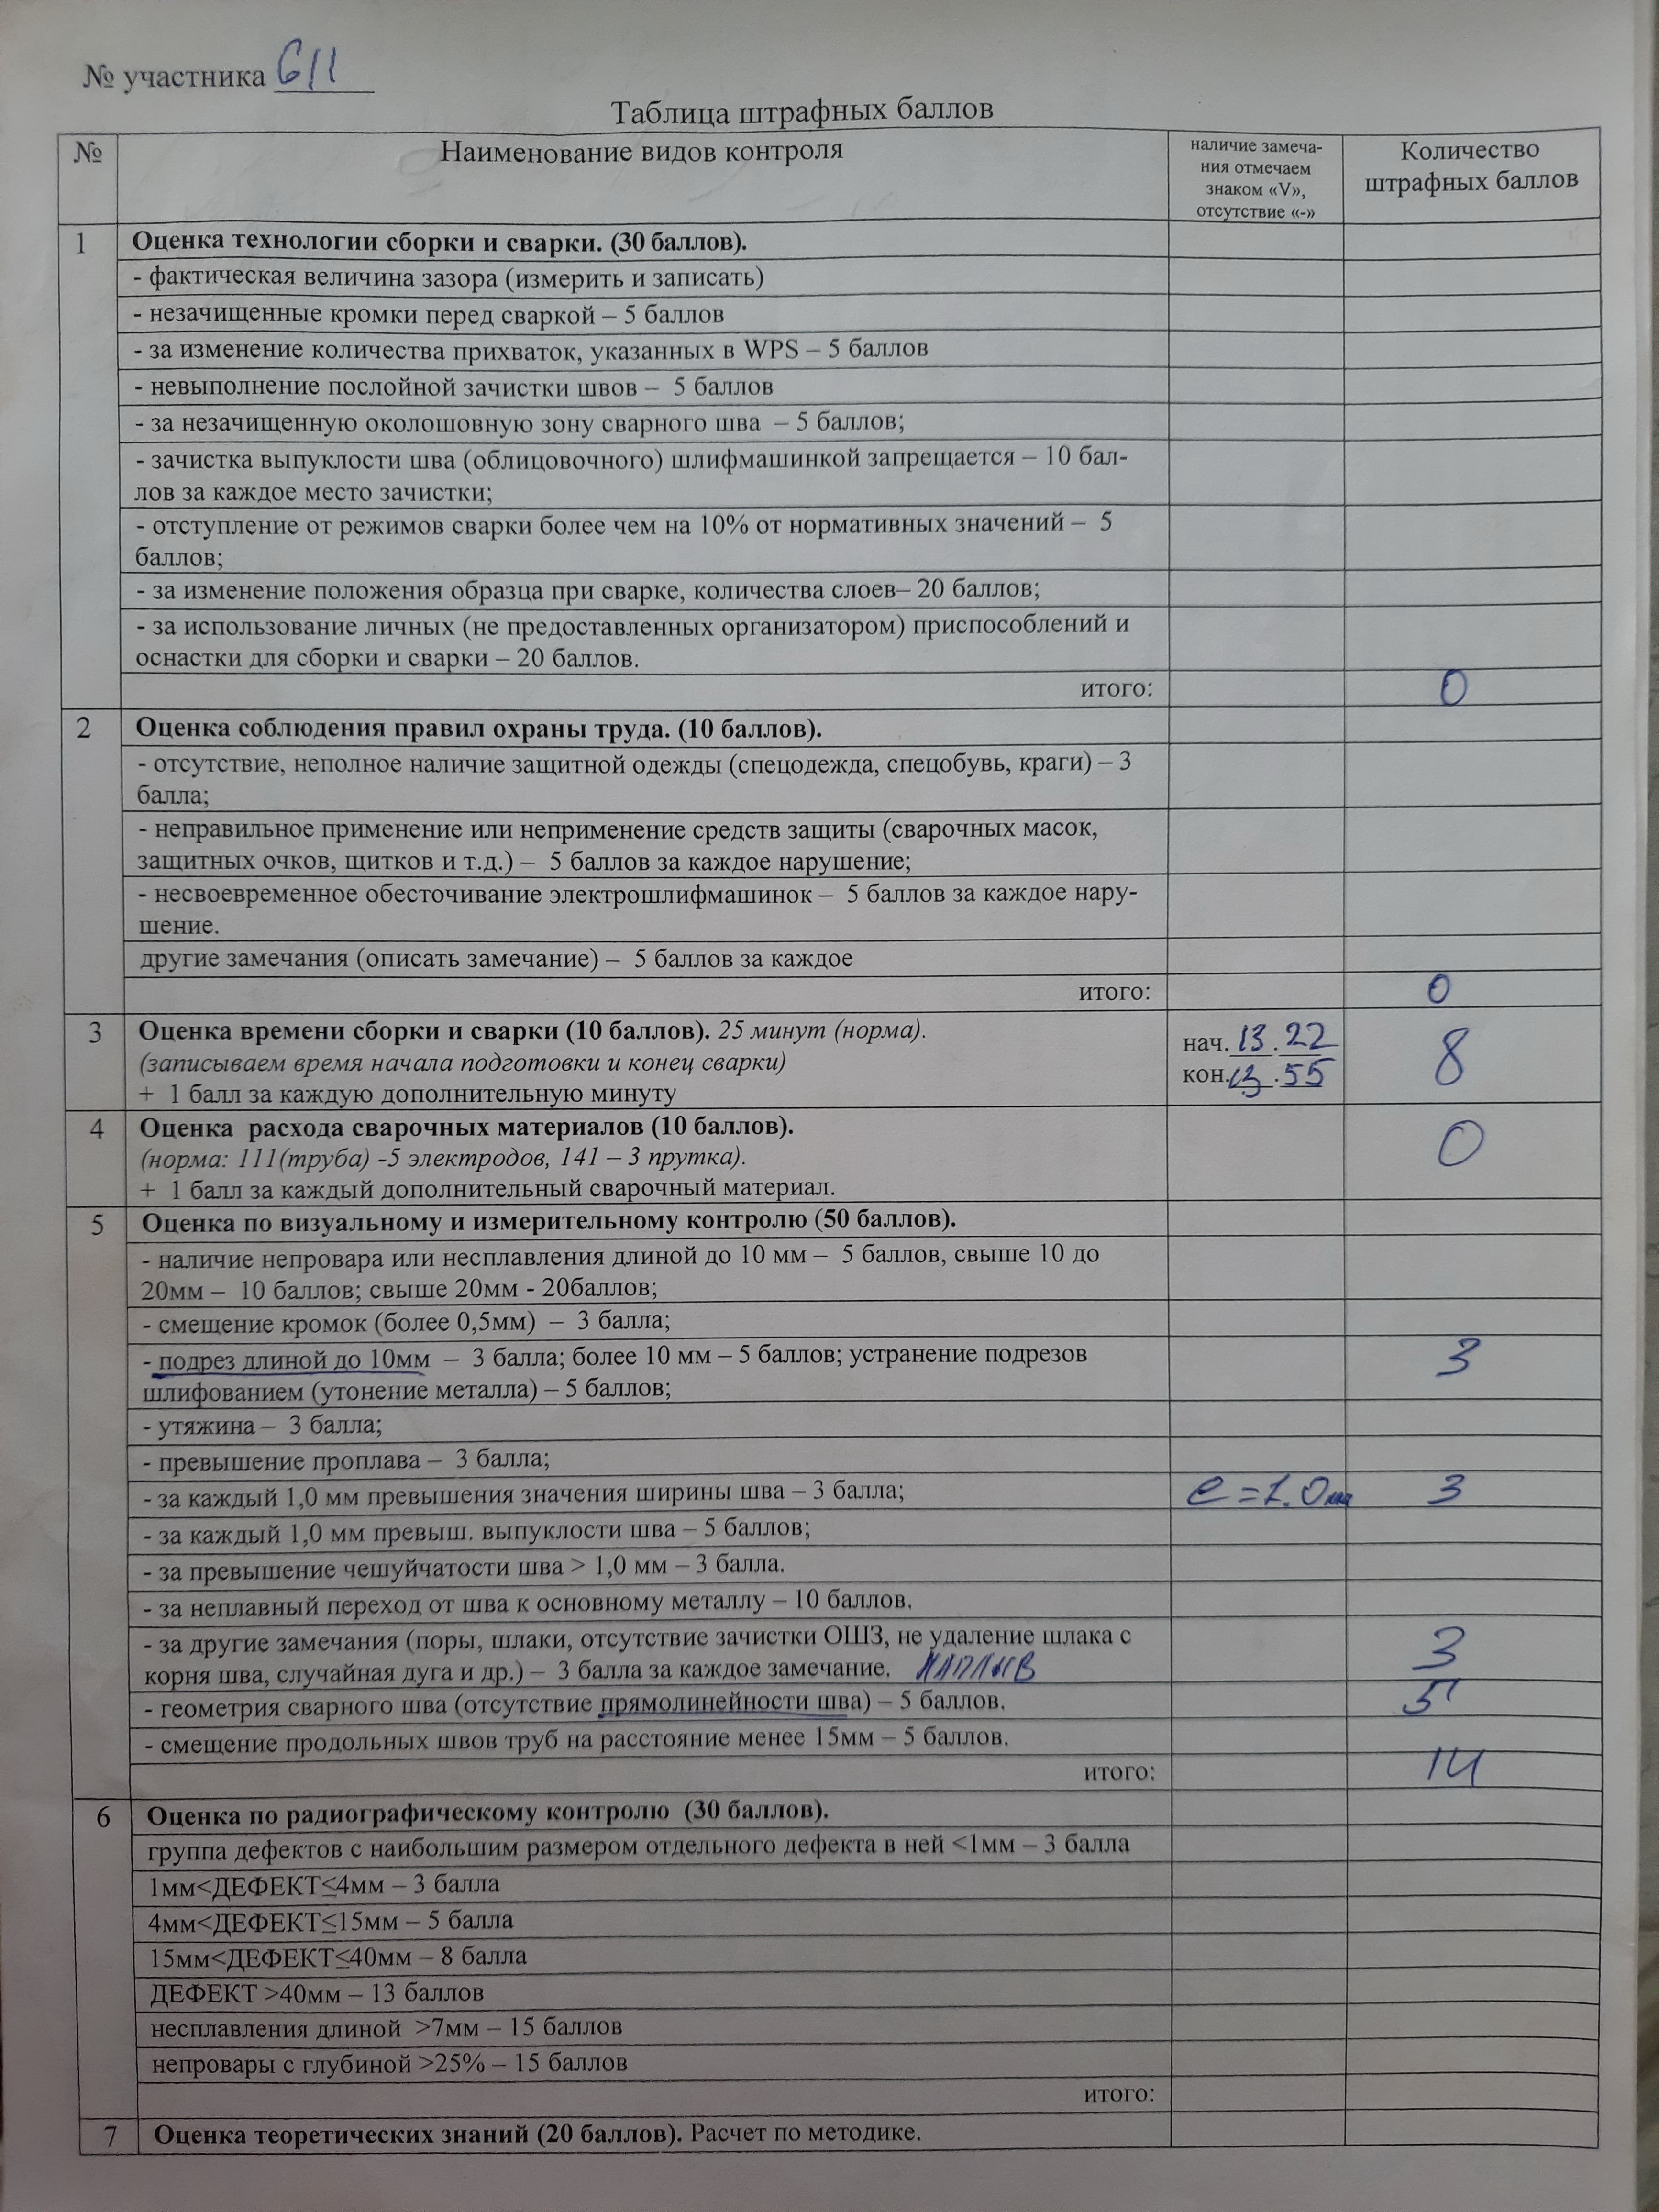 № участника 611
Таблица штрафных баллов
№
Наименование видов контроля
наличие замеча-
ния отмечаем
знаком «V»,
отсутствие «-»
Количество
штрафных баллов
1
Оценка технологии сборки и сварки. (30 баллов).
- фактическая величина зазора (измерить и записать)
- незачищенные кромки перед сваркой – 5 баллов
- за изменение количества прихваток, указанных в WPS – 5 баллов
- невыполнение послойной зачистки швов – 5 баллов
- за незачищенную околошовную зону сварного шва – 5 баллов;
- зачистка выпуклости шва (облицовочного) шлифмашинкой запрещается – 10 бал-
лов за каждое место зачистки;
- отступление от режимов сварки более чем на 10% от нормативных значений – 5
баллов;
- за изменение положения образца при сварке, количества слоев– 20 баллов;
- за использование личных (не предоставленных организатором) приспособлений и
оснастки для сборки и сварки – 20 баллов.
итого: 0
2
Оценка соблюдения правил охраны труда. (10 баллов).
- отсутствие, неполное наличие защитной одежды (спецодежда, спецобувь, краги) – 3
балла;
- неправильное применение или неприменение средств защиты (сварочных масок,
защитных очков, щитков и т.д.) – 5 баллов за каждое нарушение;
- несвоевременное обесточивание электрошлифмашинок – 5 баллов за каждое нару-
шение.
другие замечания (описать замечание) – 5 баллов за каждое
итого: 0
3
Оценка времени сборки и сварки (10 баллов). 25 минут (норма).
(записываем время начала подготовки и конец сварки)
+ 1 балл за каждую дополнительную минуту
нач. 13.22
кон. 13.55
8
4
Оценка расхода сварочных материалов (10 баллов).
(норма: 111(труба) -5 электродов, 141 – 3 прутка).
+ 1 балл за каждый дополнительный сварочный материал.
0
5
Оценка по визуальному и измерительному контролю (50 баллов).
- наличие непровара или несплавления длиной до 10 мм – 5 баллов, свыше 10 до
20мм – 10 баллов; свыше 20мм - 20баллов;
- смещение кромок (более 0,5мм) – 3 балла;
- подрез длиной до 10мм – 3 балла; более 10 мм – 5 баллов; устранение подрезов
шлифованием (утонение металла) – 5 баллов;
3
- утяжина – 3 балла;
- превышение проплава – 3 балла;
- за каждый 1,0 мм превышения значения ширины шва – 3 балла; e = 1.0мм 3
- за каждый 1,0 мм превыш. выпуклости шва – 5 баллов;
- за превышение чешуйчатости шва > 1,0 мм – 3 балла.
- за неплавный переход от шва к основному металлу – 10 баллов.
- за другие замечания (поры, шлаки, отсутствие зачистки ОШЗ, не удаление шлака с
корня шва, случайная дуга и др.) – 3 балла за каждое замечание. НАПЛЫВ
3
- геометрия сварного шва (отсутствие прямолинейности шва) – 5 баллов. 5
- смещение продольных швов труб на расстояние менее 15мм – 5 баллов.
итого: 14
6
Оценка по радиографическому контролю (30 баллов).
группа дефектов с наибольшим размером отдельного дефекта в ней <1мм – 3 балла
1мм<ДЕФЕКТ≤4мм – 3 балла
4мм<ДЕФЕКТ≤15мм – 5 балла
15мм<ДЕФЕКТ≤40мм – 8 балла
ДЕФЕКТ >40мм – 13 баллов
несплавления длиной >7мм – 15 баллов
непровары с глубиной >25% – 15 баллов
итого:
7
Оценка теоретических знаний (20 баллов). Расчет по методике.